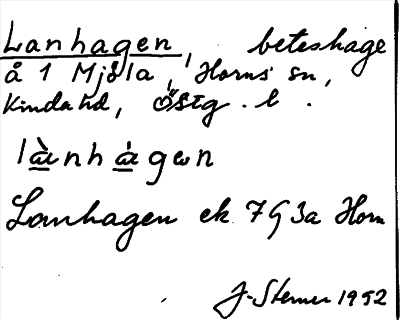 Lanhagen, beteshage
å 1 Mjåla, Horns sn,
Kinda hd, Östg. l.
là̱nhá̱gɐn
Lanhagen ek 7 G 3a Horn
J-Sterner 1952